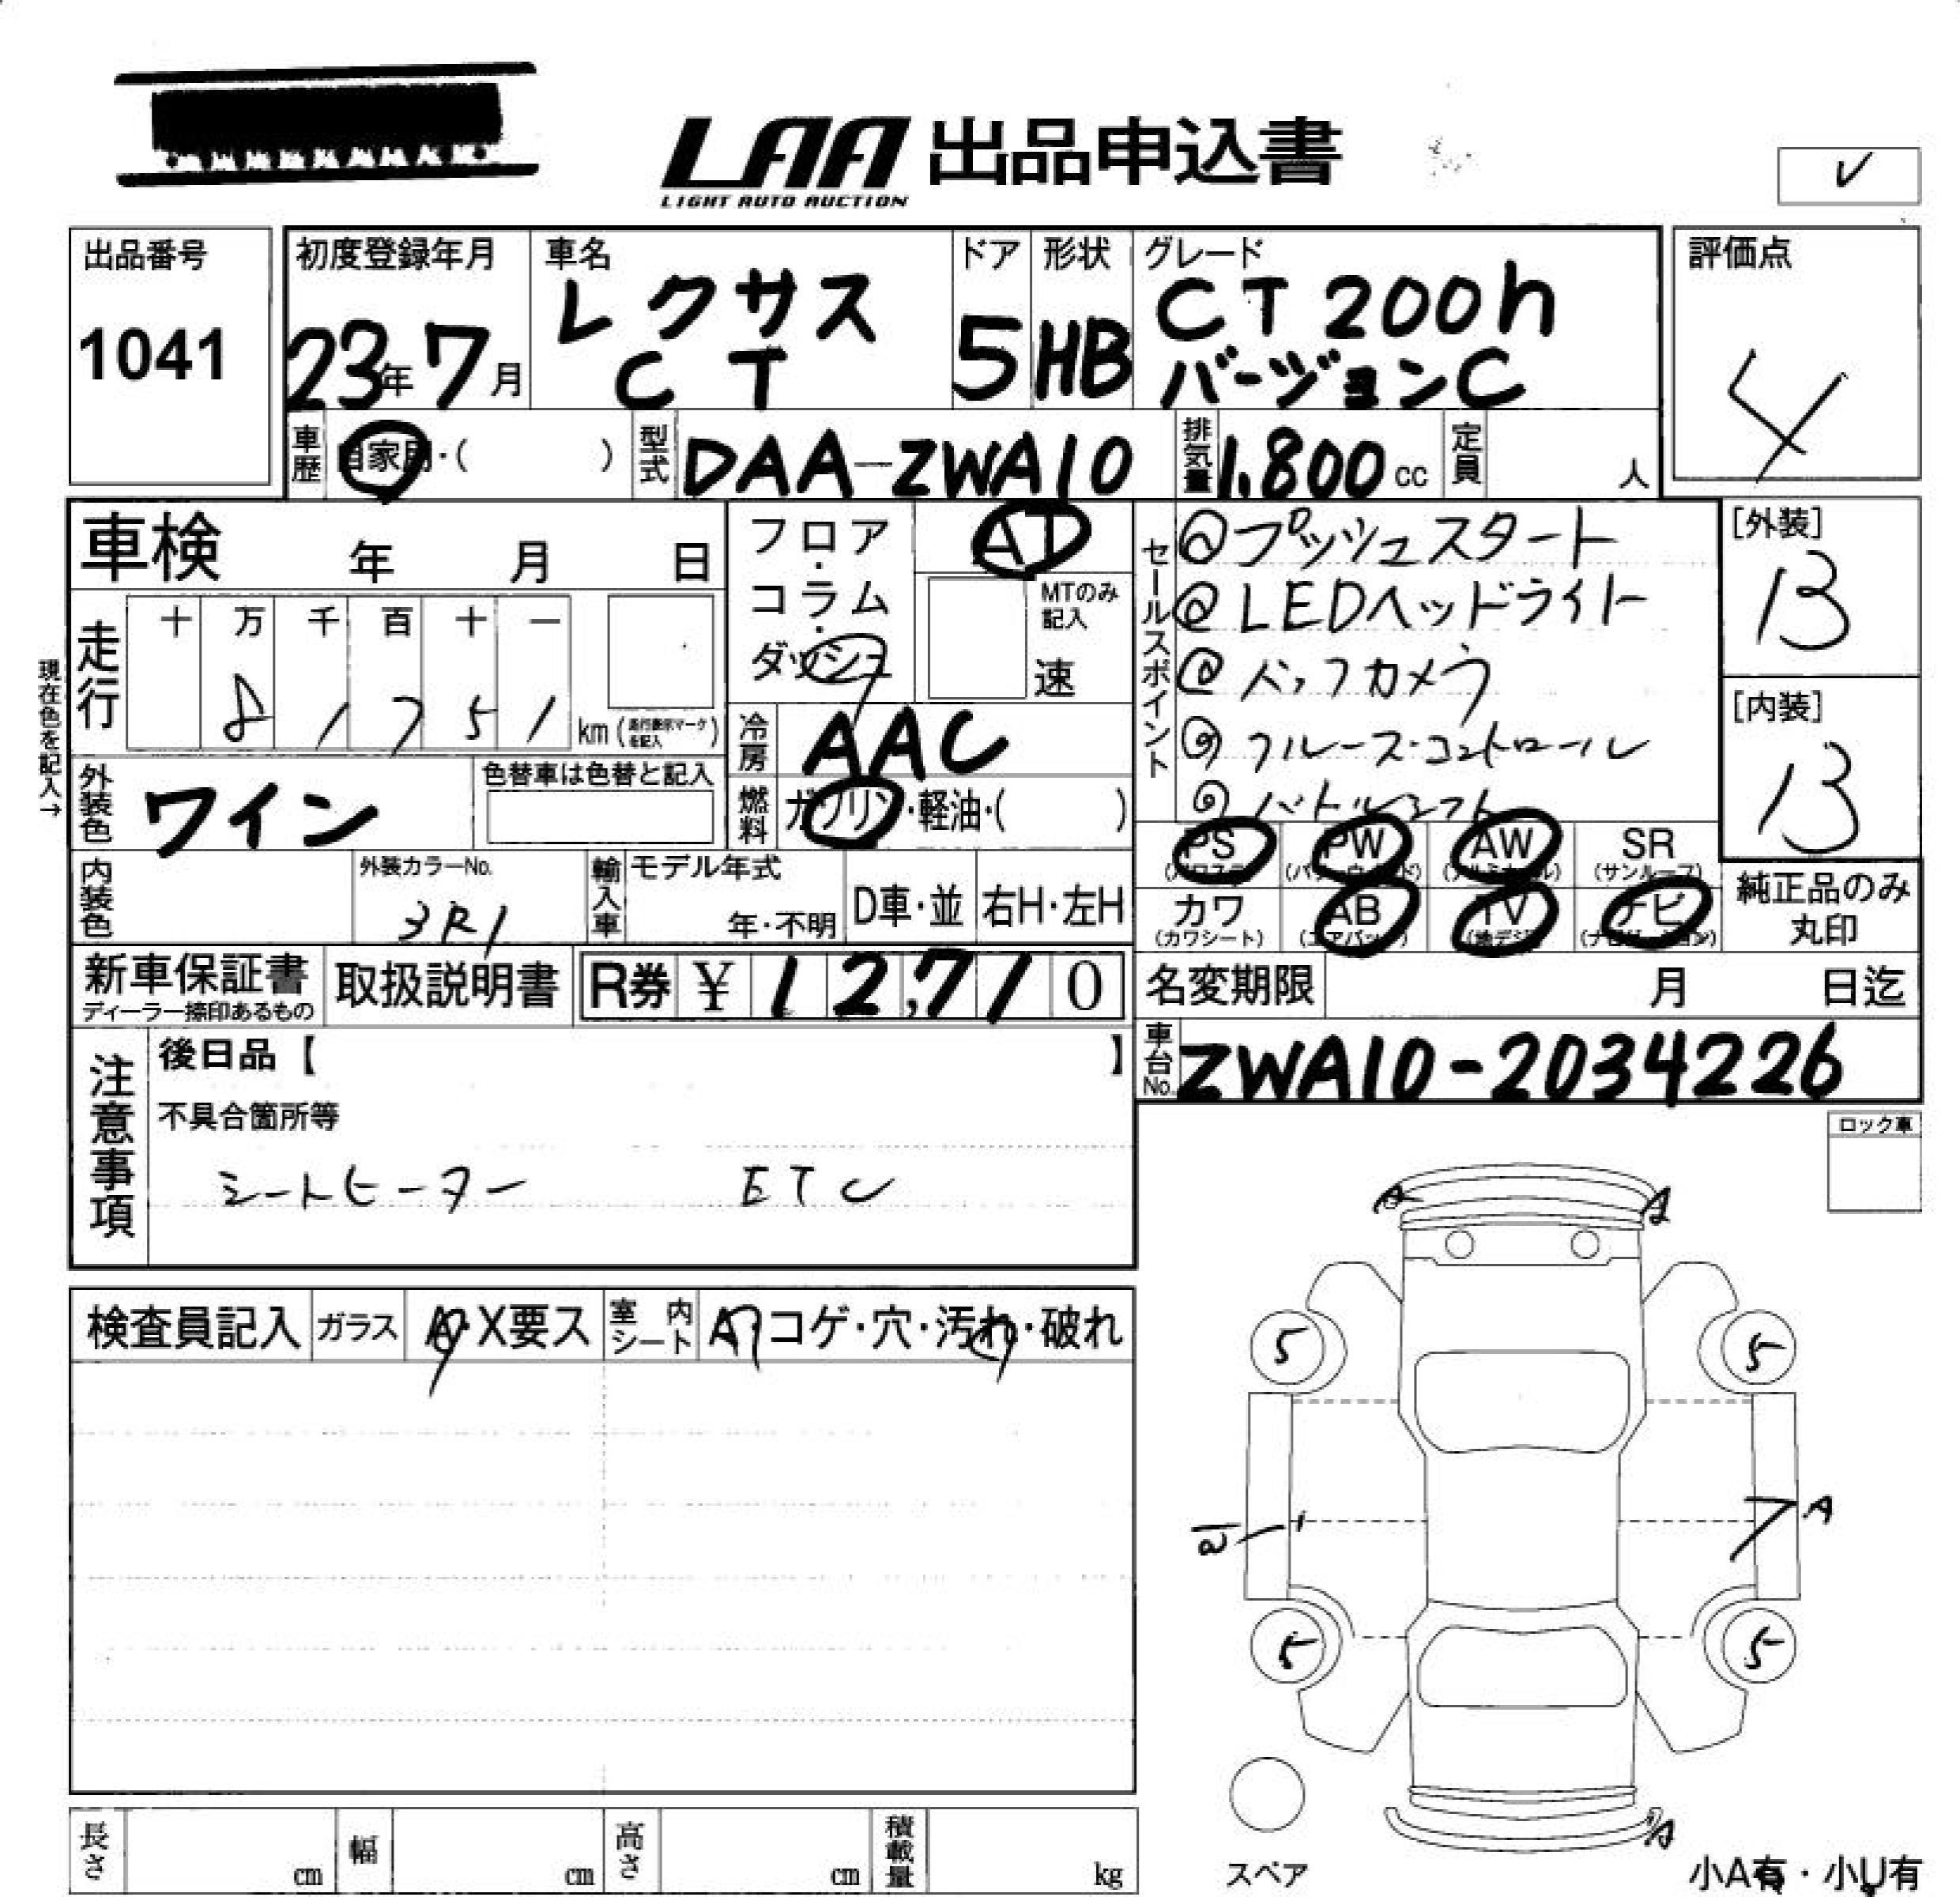 LAA 出品申込書
LIGHT AUTO AUCTION
レ
出品番号
1041
初度登録年月
23年7月
車名
レクサス
CT
ドア
5
形状
HB
グレード
CT200h
バージョンC
評価点
4
車歴
自家用・( )
型式
DAA-ZWA10
排気量
1.800cc
定員
人
車検 年 月 日
フロア・コラム・ダッシュ
AT
MTのみ記入
速
セールスポイント
@プッシュスタート
@LEDヘッドライト
@バックカメラ
@クルーズ・コントロール
@パドルシフト
[外装]
B
[内装]
B
現在色を記入→
走行
十 万 千 百 十 一
8 1 7 5 1
km (走行表示マークを記入)
冷房
AAC
燃料
ガソリン・軽油・( )
外装色
ワイン
色替車は色替と記入
PS (パワステ)
PW (パワーウィンド)
AW (アルミホイール)
SR (サンルーフ)
カワ (カワシート)
AB (エアバッグ)
TV (地デジ)
ナビ (ナビゲーション)
純正品のみ
丸印
内装色
外装カラーNo.
3R1
輸入車
モデル年式
年・不明
D車・並
右H・左H
新車保証書
ディーラー捺印あるもの
取扱説明書
R券 ¥ 12,710
名変期限 月 日迄
車台No.
ZWA10-2034226
注意事項
後日品【 】
不具合箇所等
シートヒーター ETC
ロック車
検査員記入
ガラス
A・X要ス
室内シート
A・コゲ・穴・汚れ・破れ
A
A
5
5
A
5
5
A
スペア
長さ cm
幅 cm
高さ cm
積載量 kg
小A有・小U有